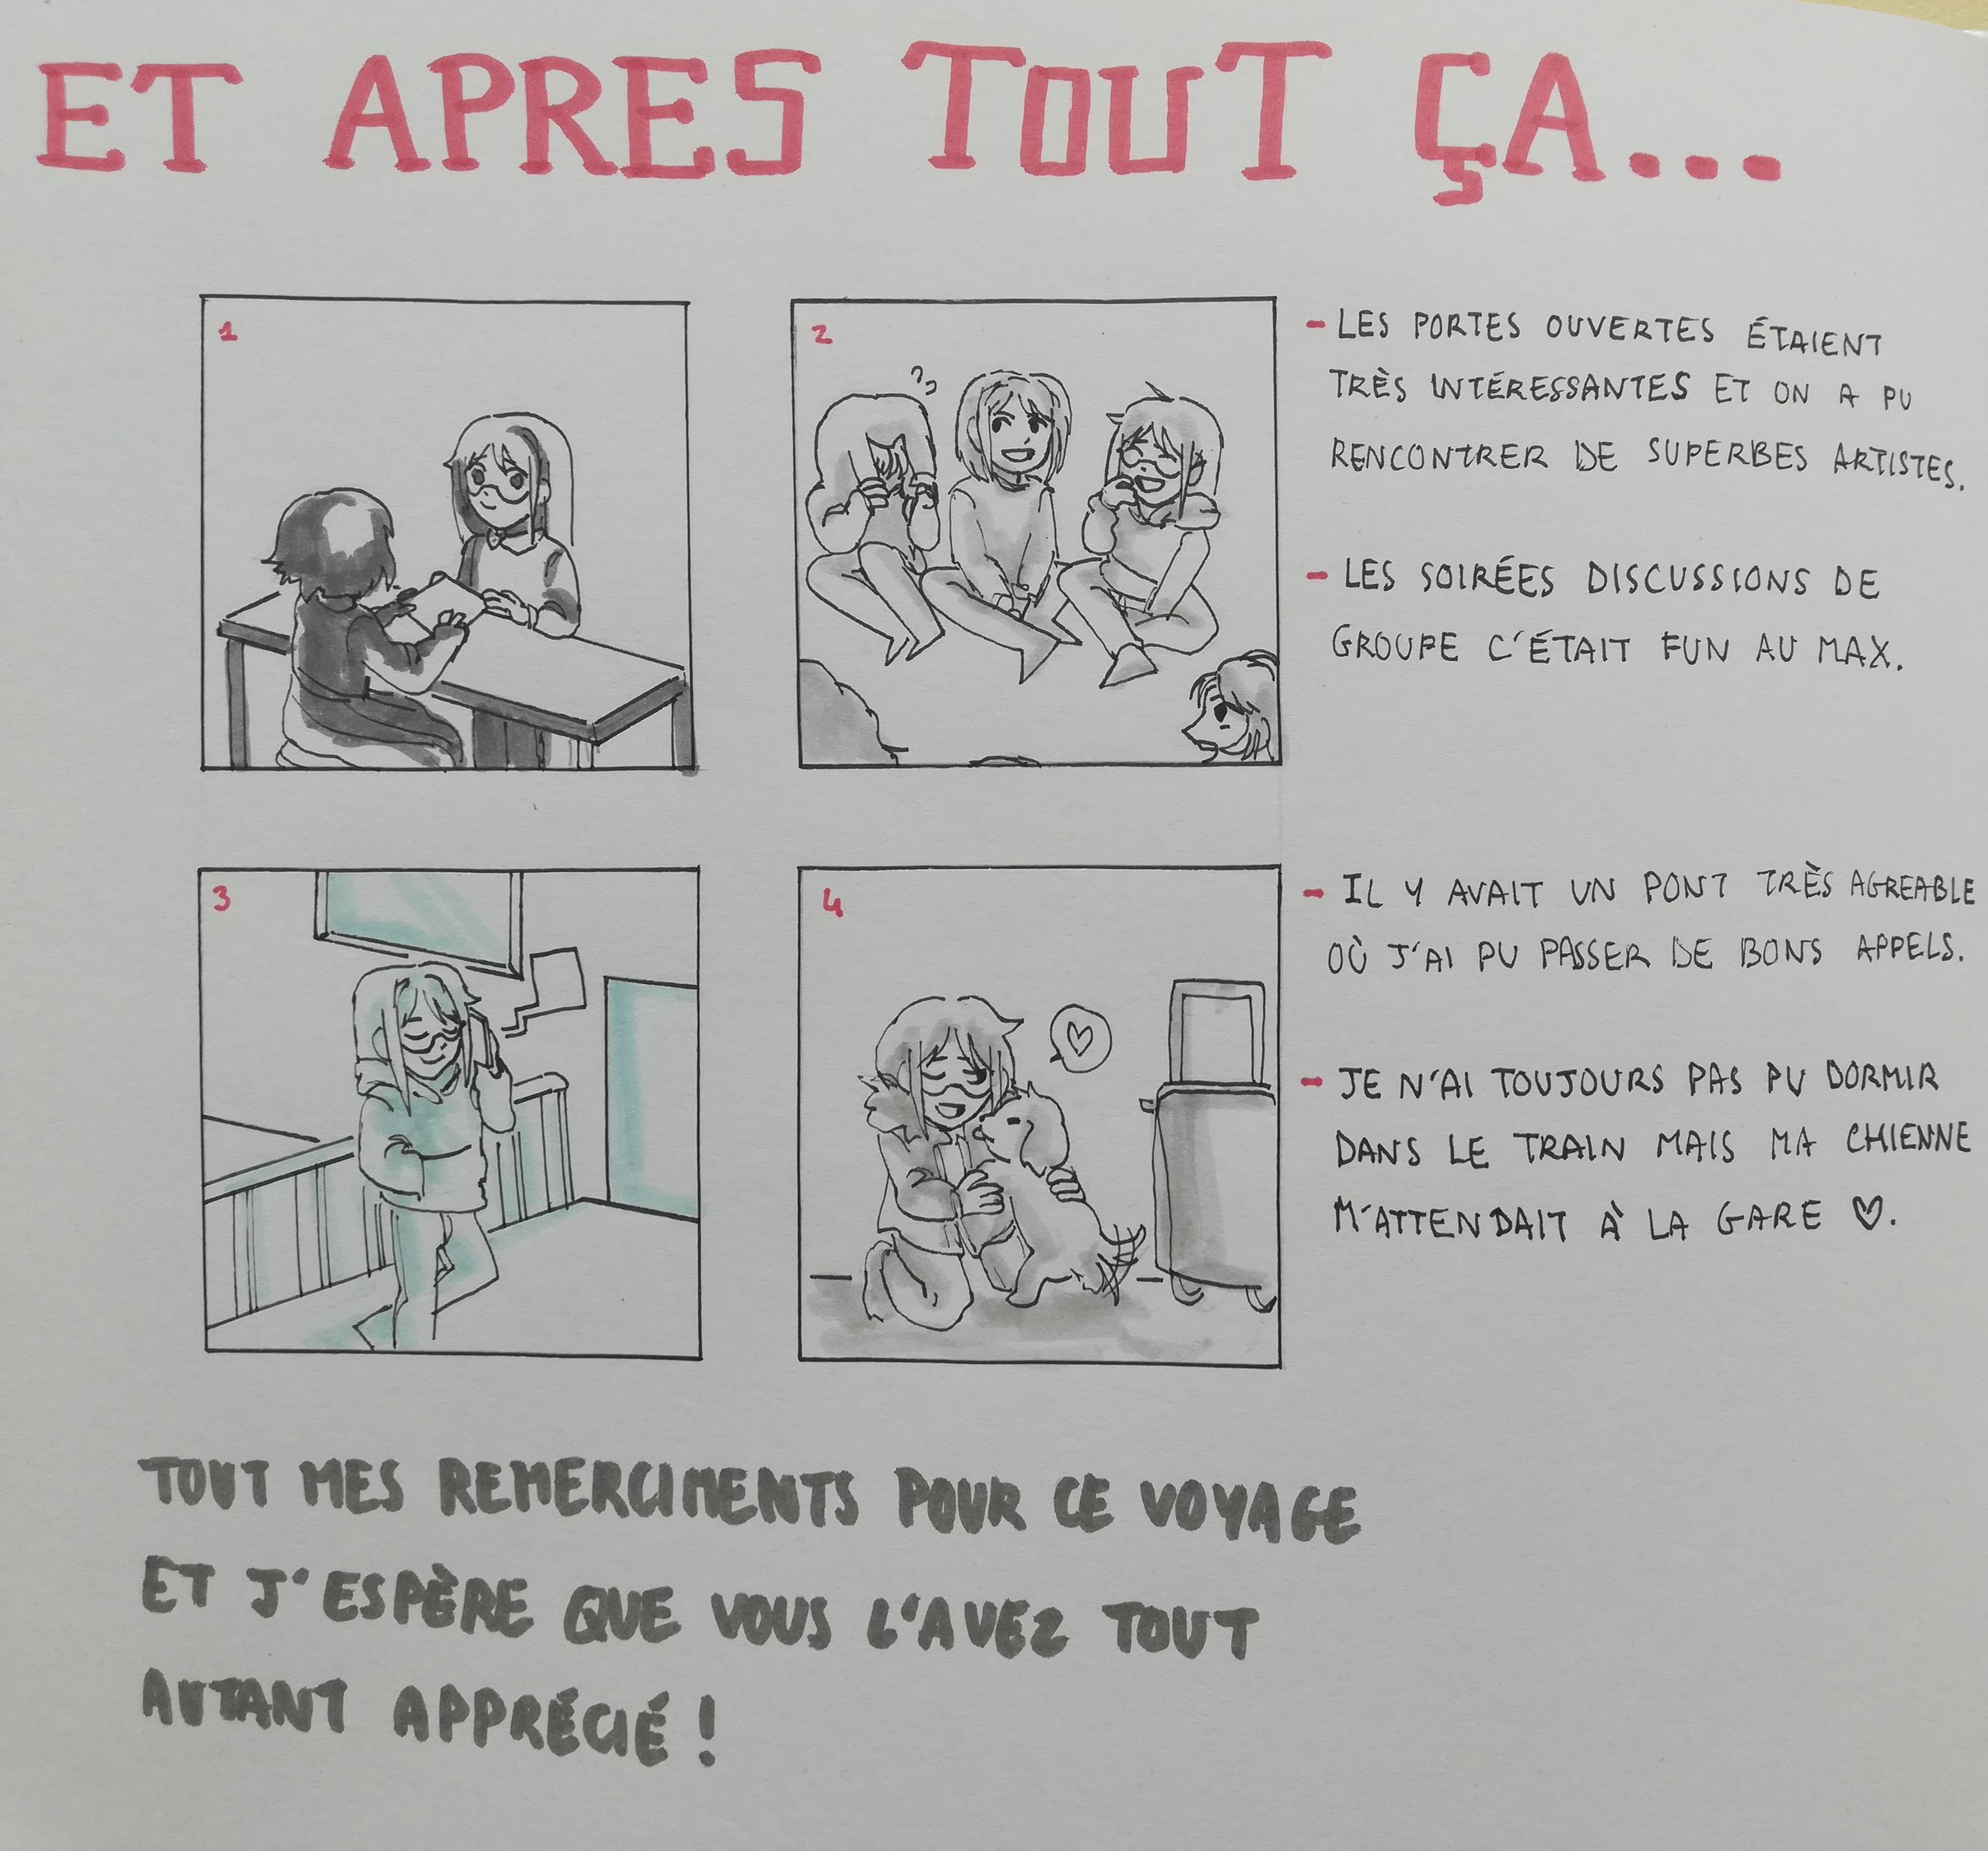 ET APRES TOUT ÇA...
1
2
- LES PORTES OUVERTES ÉTAIENT
TRÈS INTÉRESSANTES ET ON A PU
RENCONTRER DE SUPERBES ARTISTES.
- LES SOIRÉES DISCUSSIONS DE
GROUPE C'ÉTAIT FUN AU MAX.
??
3
4
- IL Y AVAIT UN PONT TRÈS AGREABLE
OÙ J'AI PU PASSER DE BONS APPELS.
- JE N'AI TOUJOURS PAS PU DORMIR
DANS LE TRAIN MAIS MA CHIENNE
M'ATTENDAIT À LA GARE ♡.
TOUT MES REMERCIMENTS POUR CE VOYAGE
ET J'ESPÈRE QUE VOUS L'AVEZ TOUT
AUTANT APPRÉCIÉ !